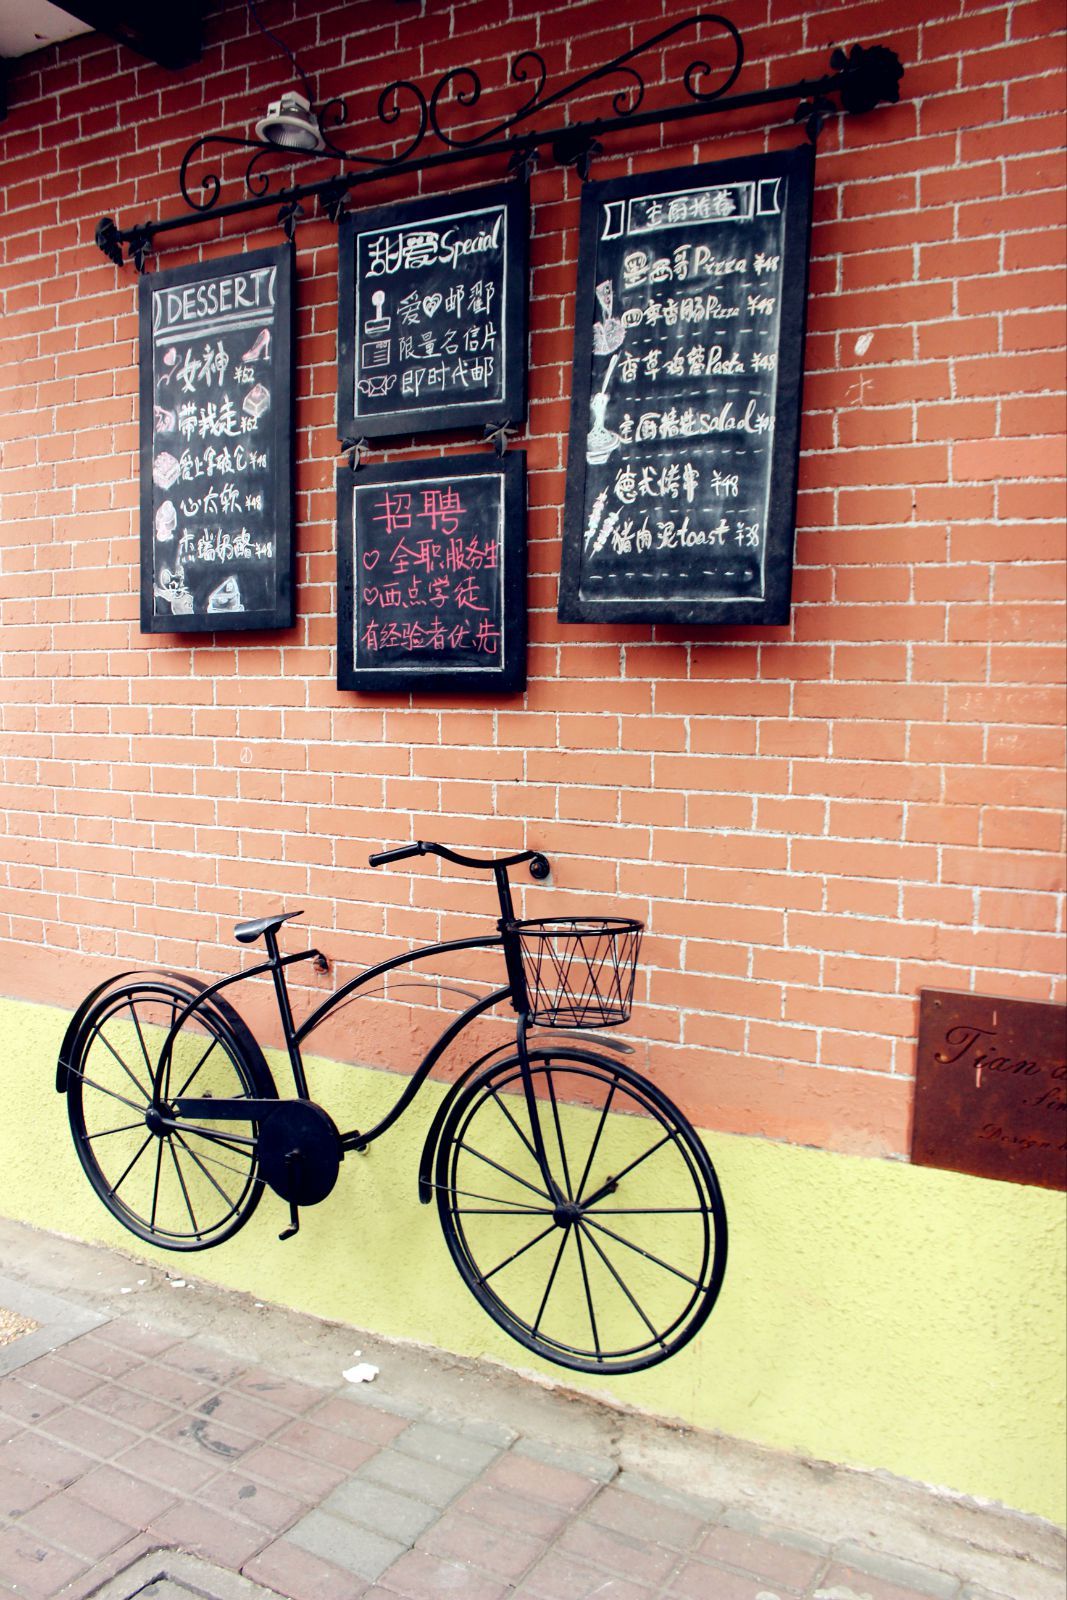 DESSERT
女神 ¥52
带我走 ¥52
爱上拿破仑 ¥48
心太软 ¥48
杰瑞奶酪 ¥48
甜爱 Special
爱 邮戳
限量名信片
即时代邮
招聘
全职服务生
西点学徒
有经验者优先
主厨推荐
墨西哥Pizza ¥48
四享香肠Pizza ¥48
香草鸡蓉Pasta ¥48
主厨精选salad ¥48
德式烤串 ¥48
猪肉泥toast ¥38
Tian
Design